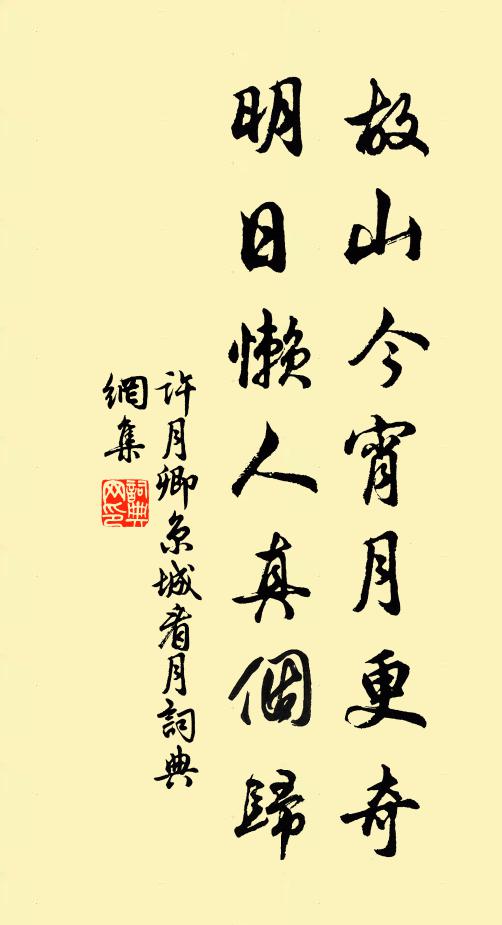 故山今宵月更奇
明日懶人真個歸
許月卿京城看月詞典
網集
詞典網印